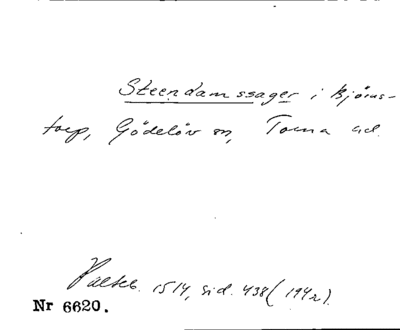 Steendamssager i Bjöms-
torp, Gödelöv sn, Torna hd.
Palteb. 1514, sid. 438 (194r).
Nr 6620.